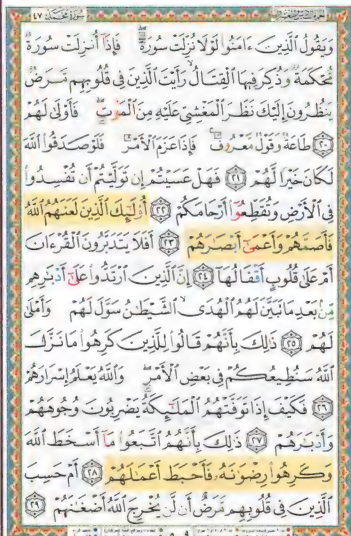 سُورَةُ مُحَمَّد ٤٧
وَيَقُولُ الَّذِينَ ءَامَنُوا لَوْلَا نُزِّلَتْ سُورَةٌ ۖ فَإِذَا أُنزِلَتْ سُورَةٌ
مُّحْكَمَةٌ وَذُكِرَ فِيهَا الْقِتَالُ ۙ رَأَيْتَ الَّذِينَ فِي قُلُوبِهِم مَّرَضٌ
يَنظُرُونَ إِلَيْكَ نَظَرَ الْمَغْشِيِّ عَلَيْهِ مِنَ الْمَوْتِ ۖ فَأَوْلَىٰ لَهُمْ
۝٢٠ طَاعَةٌ وَقَوْلٌ مَّعْرُوفٌ ۚ فَإِذَا عَزَمَ الْأَمْرُ فَلَوْ صَدَقُوا اللَّهَ
لَكَانَ خَيْرًا لَّهُمْ ۝٢١ فَهَلْ عَسَيْتُمْ إِن تَوَلَّيْتُمْ أَن تُفْسِدُوا
فِي الْأَرْضِ وَتُقَطِّعُوا أَرْحَامَكُمْ ۝٢٢ أُولَٰئِكَ الَّذِينَ لَعَنَهُمُ اللَّهُ
فَأَصَمَّهُمْ وَأَعْمَىٰ أَبْصَارَهُمْ ۝٢٣ أَفَلَا يَتَدَبَّرُونَ الْقُرْءَانَ
أَمْ عَلَىٰ قُلُوبٍ أَقْفَالُهَا ۝٢٤ إِنَّ الَّذِينَ ارْتَدُّوا عَلَىٰ أَدْبَارِهِم
مِّن بَعْدِ مَا تَبَيَّنَ لَهُمُ الْهُدَى ۙ الشَّيْطَانُ سَوَّلَ لَهُمْ وَأَمْلَىٰ
لَهُمْ ۝٢٥ ذَٰلِكَ بِأَنَّهُمْ قَالُوا لِلَّذِينَ كَرِهُوا مَا نَزَّلَ
اللَّهُ سَنُطِيعُكُمْ فِي بَعْضِ الْأَمْرِ ۖ وَاللَّهُ يَعْلَمُ إِسْرَارَهُمْ
۝٢٦ فَكَيْفَ إِذَا تَوَفَّتْهُمُ الْمَلَائِكَةُ يَضْرِبُونَ وُجُوهَهُمْ
وَأَدْبَارَهُمْ ۝٢٧ ذَٰلِكَ بِأَنَّهُمُ اتَّبَعُوا مَا أَسْخَطَ اللَّهَ
وَكَرِهُوا رِضْوَانَهُ فَأَحْبَطَ أَعْمَالَهُمْ ۝٢٨ أَمْ حَسِبَ
الَّذِينَ فِي قُلُوبِهِم مَّرَضٌ أَن لَّن يُخْرِجَ اللَّهُ أَضْغَانَهُمْ ۝٢٩